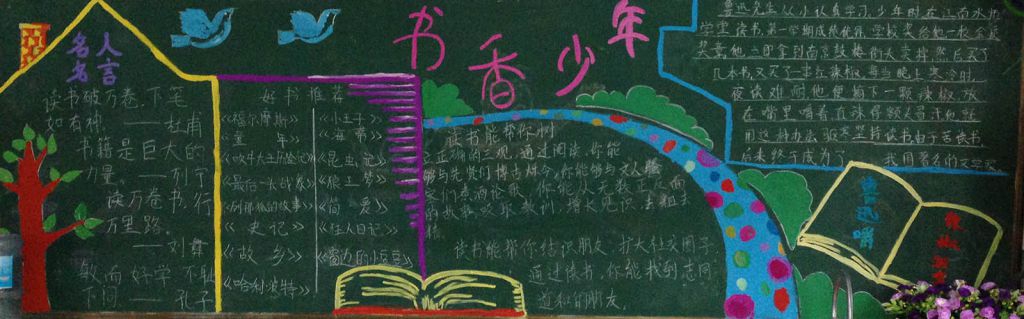 书香少年
名人
名言
读书破万卷,下笔
如有神。——杜甫
书籍是巨大的
力量。——列宁
读万卷书,行
万里路。
——刘彝
敏而好学 不耻
下问——孔子
好书推荐
《福尔摩斯》《小王子》
《童年》《海蒂》
《吹牛大王历险记》《昆虫记》
《最后一头战象》《狼王梦》
《列那狐的故事》《简爱》
《史记》《狂人日记》
《故乡》《窗边的小豆豆》
《哈利波特》
读书能帮你树
立正确的三观,通过阅读,你能
够与先贤们博古
你能够与文人
增长见识,去粗去
精
读书能帮你结识朋友,扩大社交圈子
通过读书,你能找到志同
道和的朋友。
鲁迅先生从小认真学习,少年时在江南水师
学堂读书,第一学期成绩优异,学校奖给他一枚金
奖章,他立即拿到南京鼓楼街头卖掉,然后买了
几本书,又买了一串红辣椒,每当晚上寒冷时,
夜读难耐,他便摘下一颗辣椒,放
在嘴里嚼着,直辣得额头冒汗,他就
用这种办法驱寒坚持读书,由于苦读书,
后来终于成为了 我国著名的文学家
鲁迅嚼
辣椒